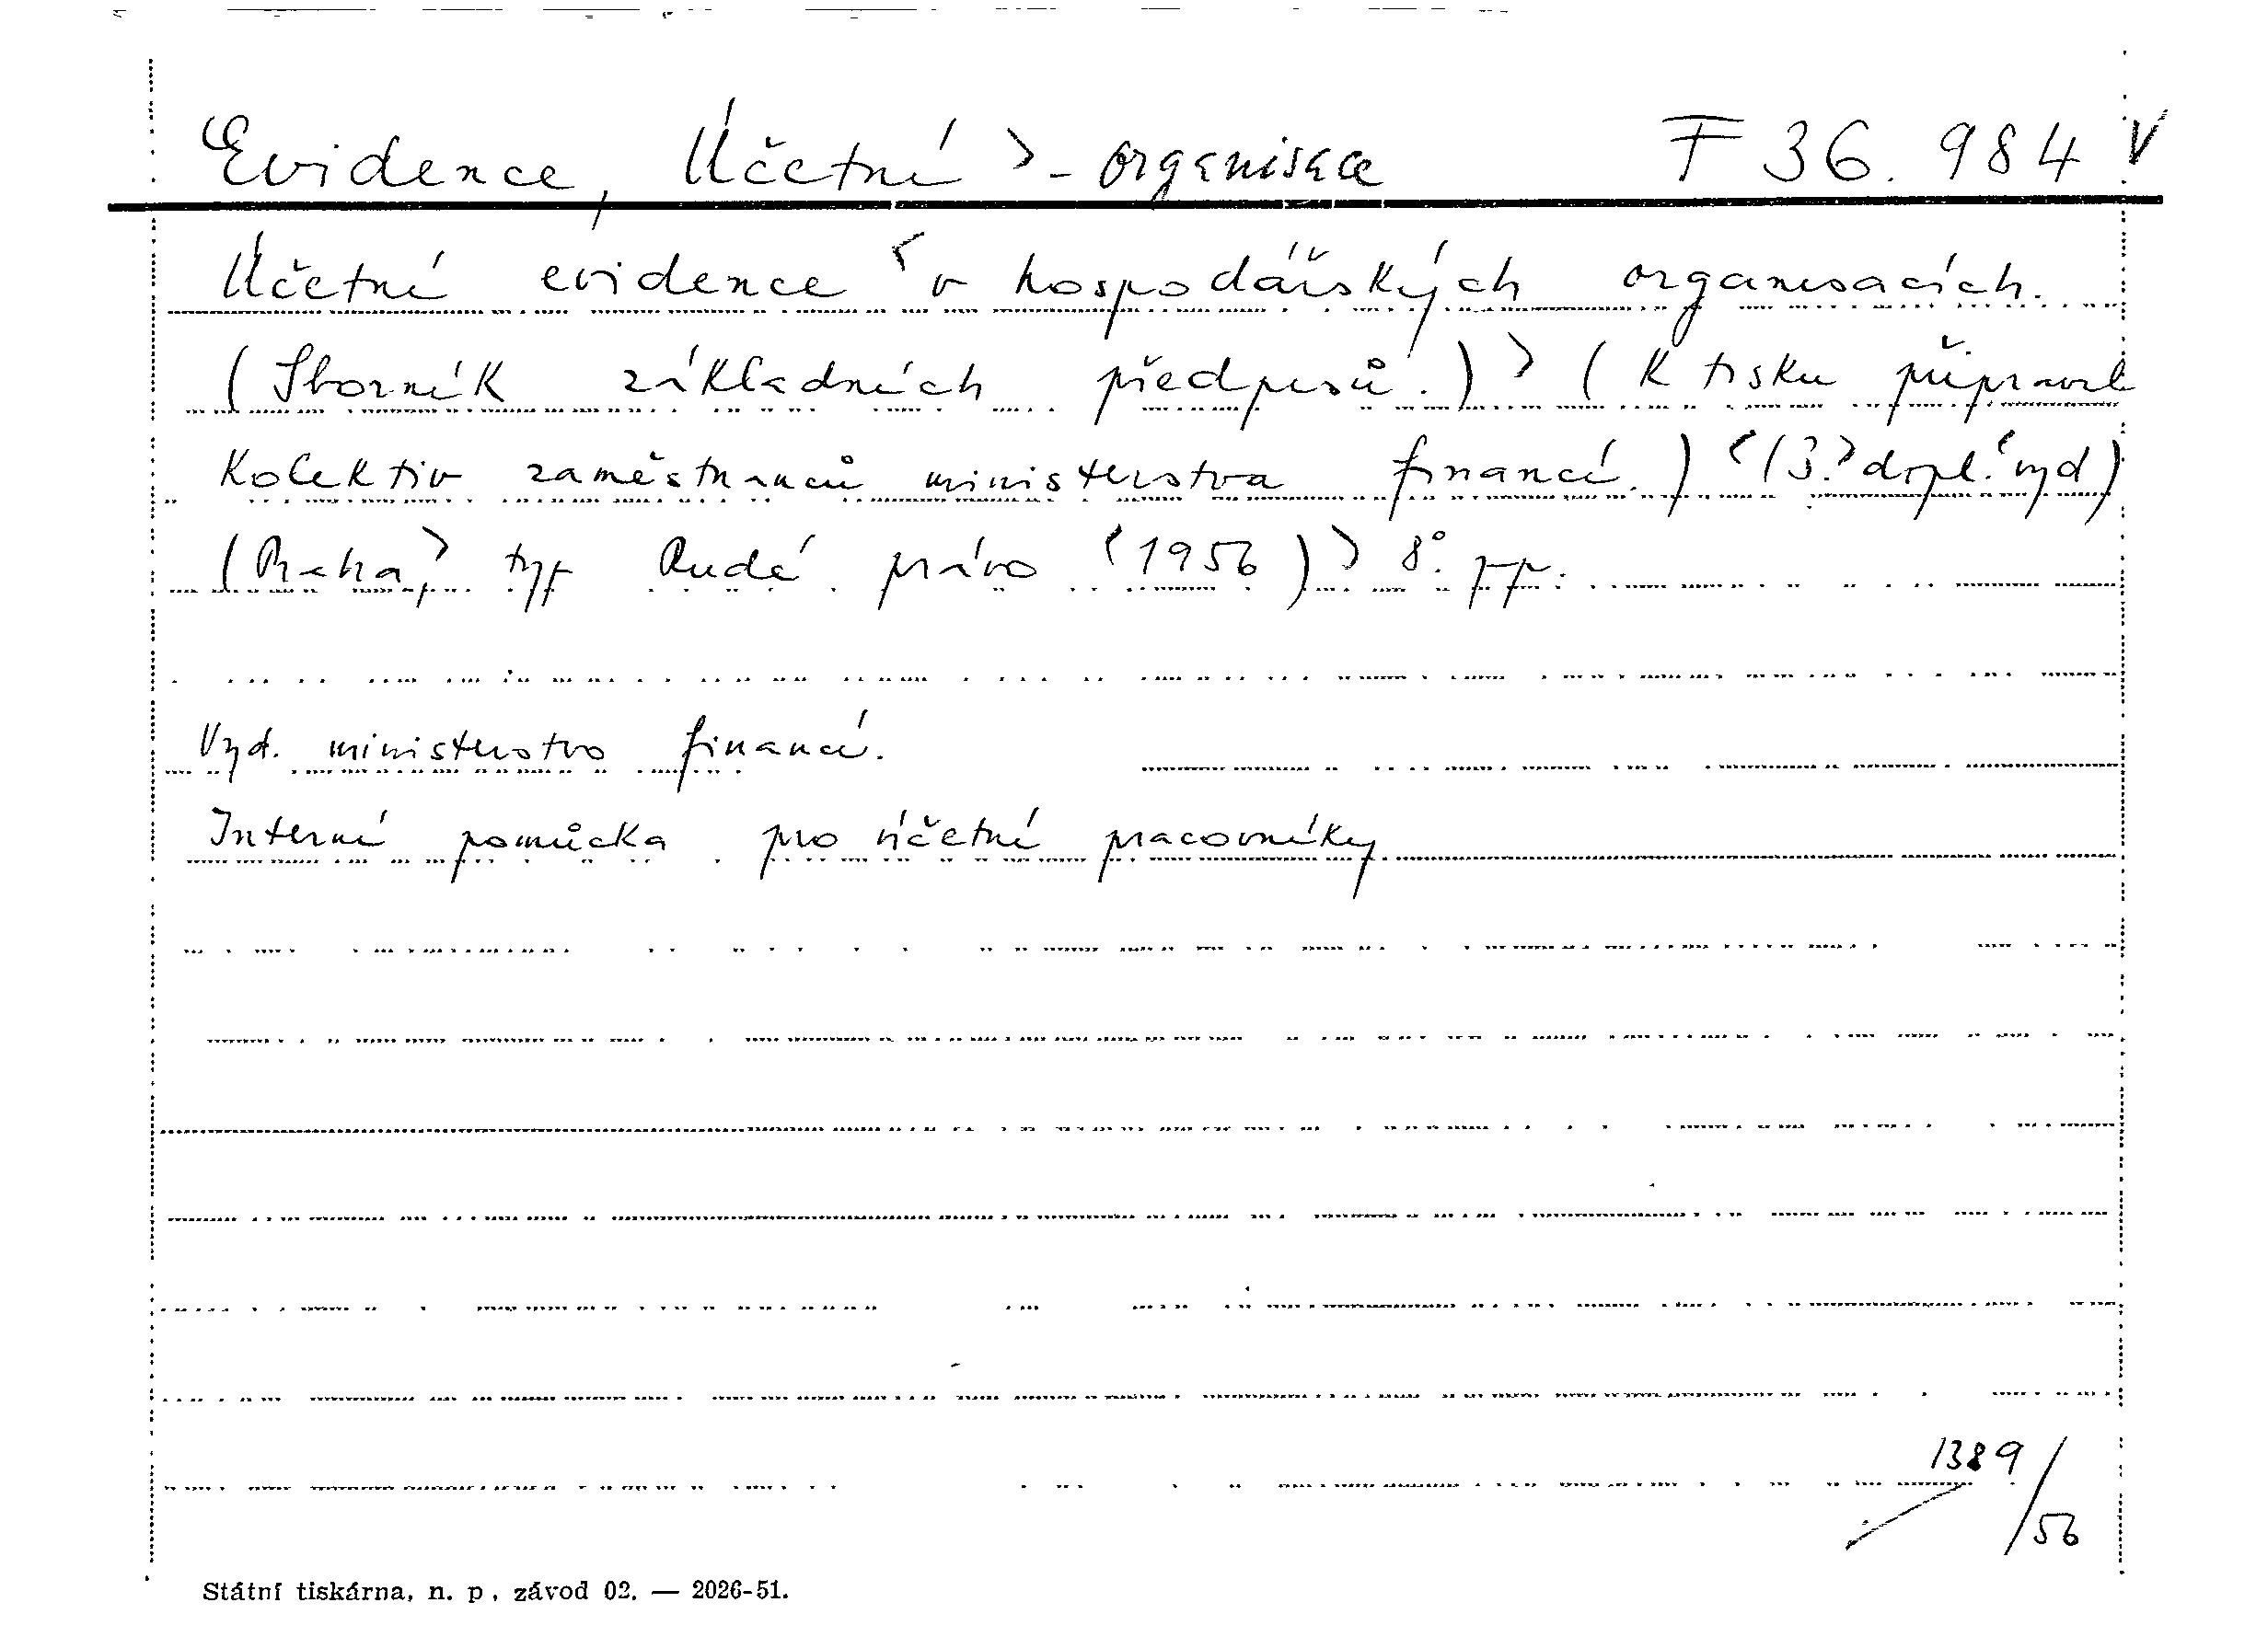 Evidence, Účetní > - organisace F 36.984 V
Účetní evidence < v hospodářských organisacích.
(Sborník základních předpisů.) > (K tisku připravil
Kolektiv zaměstnanců ministerstva financí.) < (3. > dopl. < vyd)
(Praha, > typ Rudé právo < 1956) > 8°. pp.
Vyd. ministerstvo financí.
Interní pomůcka pro účetní pracovníky
1389/56
Státní tiskárna, n. p., závod 02. — 2026-51.